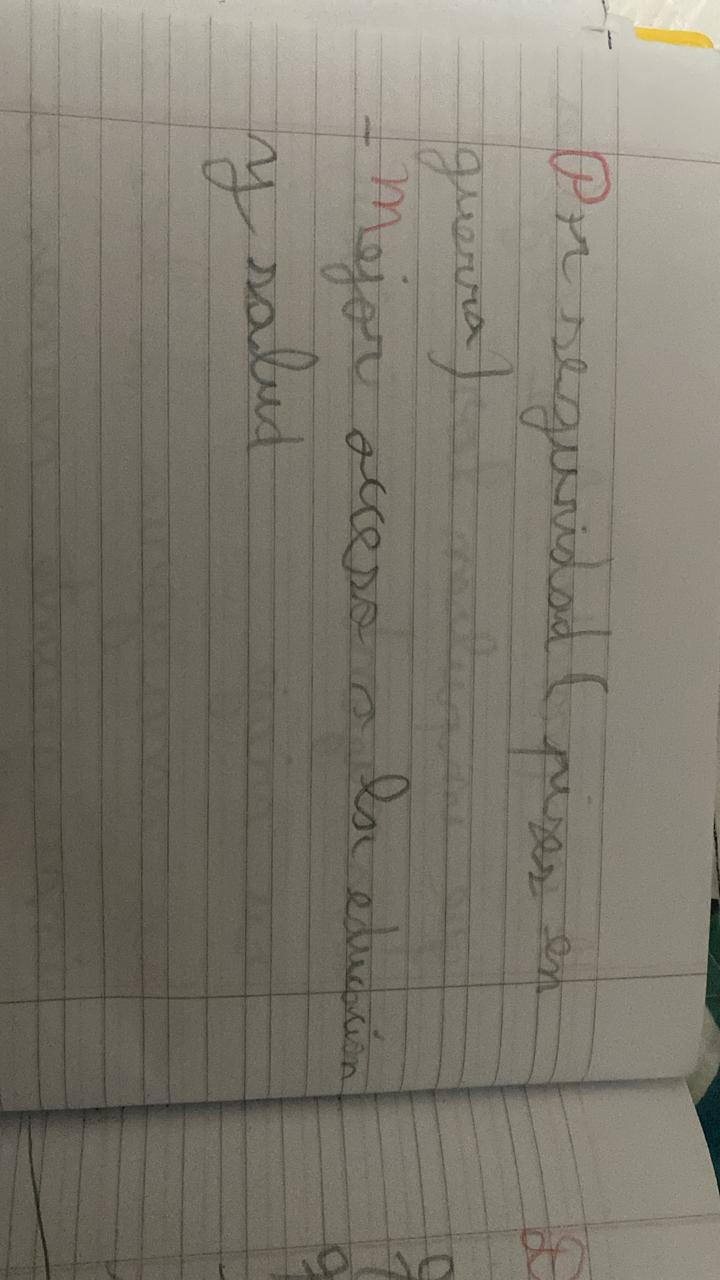 Por seguridad (paises en
guerra)
- Mejor acceso a la educación
y salud